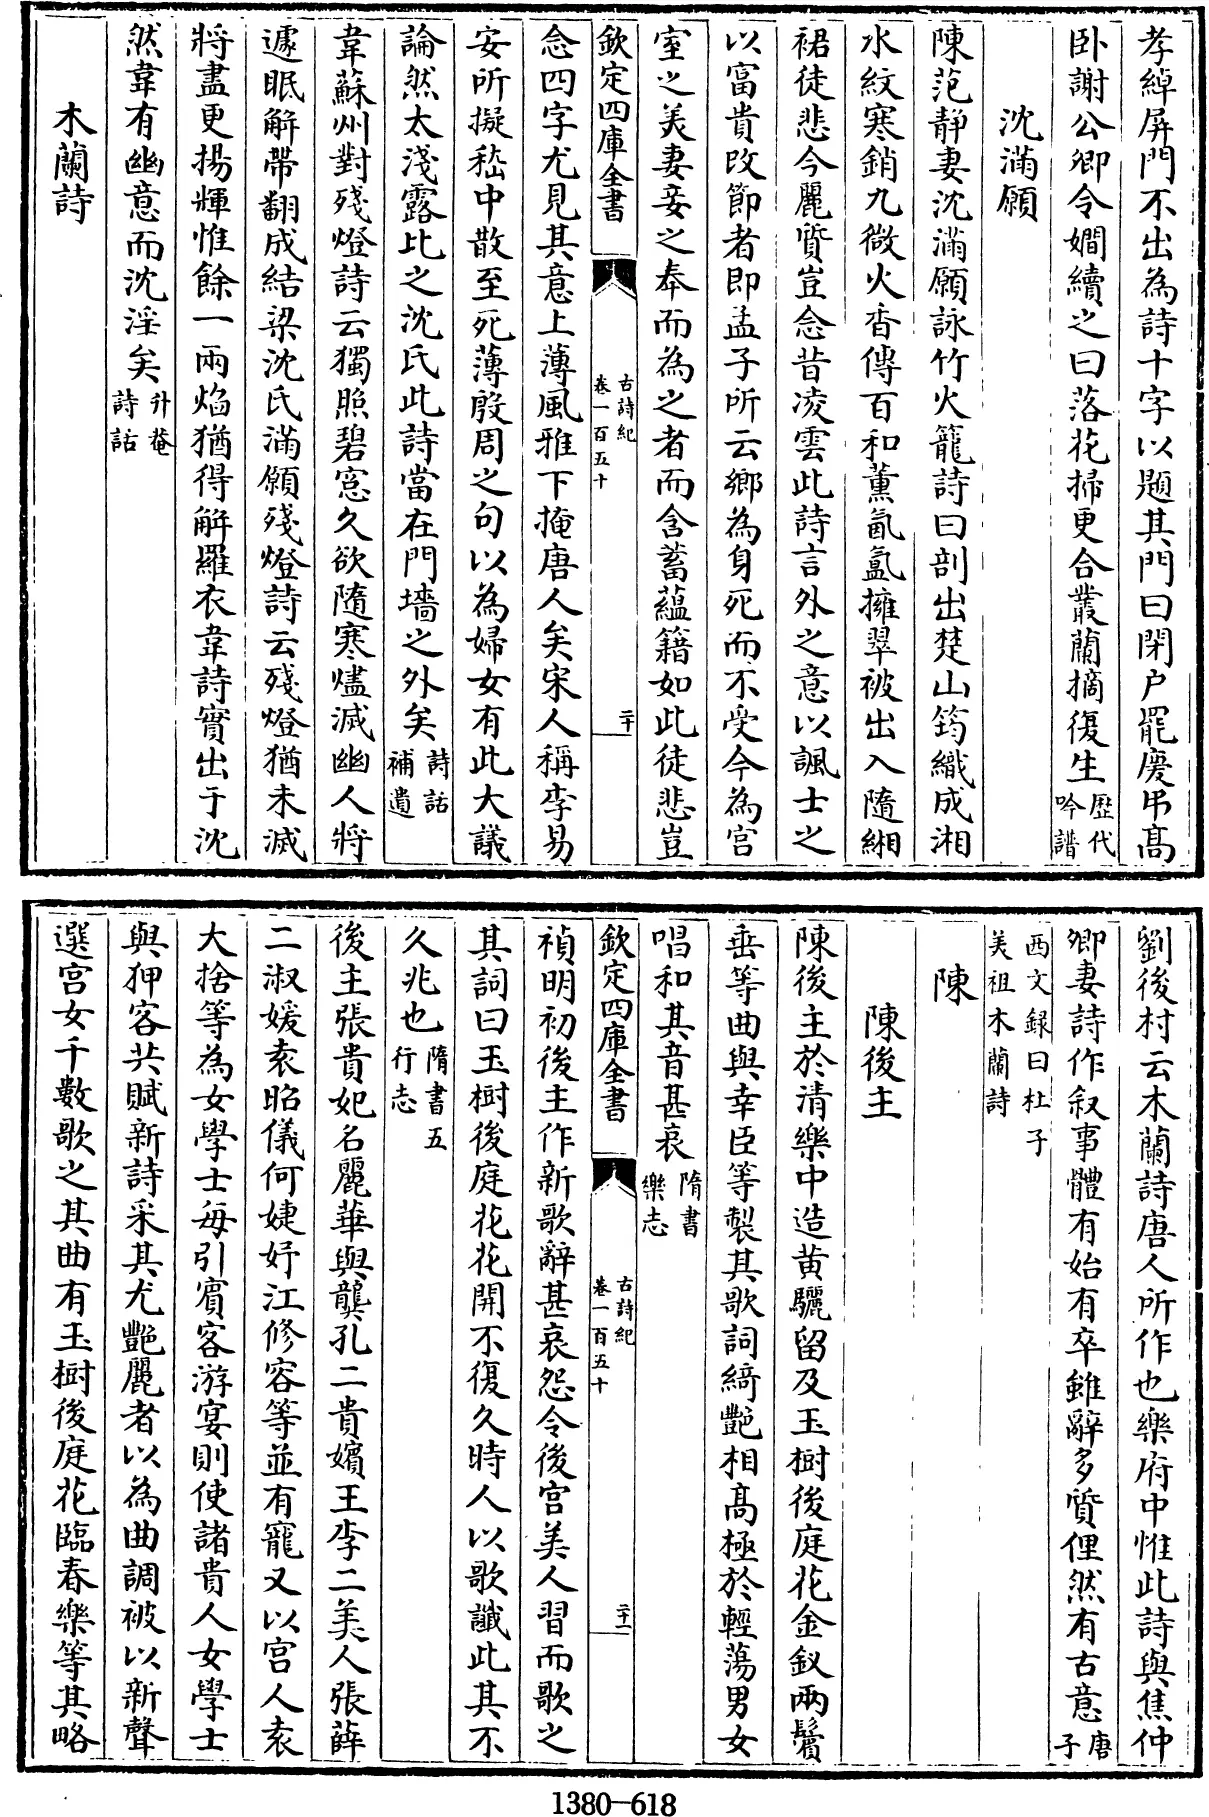 孝綽屏門不出為詩十字以題其門曰閉户罷慶弔髙
卧謝公卿令嫺續之曰落花掃更合叢蘭摘復生歴代吟譜
沈滿願
陳范靜妻沈滿願詠竹火籠詩曰剖出楚山筠織成湘
水紋寒銷九微火香傳百和薫氤氲擁翠被出入隨緗
裙徒悲今麗質豈念昔凌雲此詩言外之意以諷士之
以富貴改節者即孟子所云鄉為身死而不受今為宫
室之美妻妾之奉而為之者而含蓄藴籍如此徒悲豈
欽定四庫全書 古詩紀卷一百五十 二十
念四字尤見其意上薄風雅下掩唐人矣宋人稱李易
安所擬嵇中散至死薄殷周之句以為婦女有此大議
論然太淺露比之沈氏此詩當在門墻之外矣詩話補遺
韋蘇州對殘燈詩云獨照碧窓久欲隨寒燼滅幽人將
遽眠解帶翻成結梁沈氏滿願殘燈詩云殘燈猶未滅
將盡更揚輝惟餘一兩焰猶得解羅衣韋詩實出于沈
然韋有幽意而沈淫矣升菴詩話
木蘭詩
劉後村云木蘭詩唐人所作也樂府中惟此詩與焦仲
卿妻詩作叙事體有始有卒雖辭多質俚然有古意唐子
西文録曰杜子美祖木蘭詩
陳
陳後主
陳後主於清樂中造黄驪留及玉樹後庭花金釵兩鬢
垂等曲與幸臣等製其歌詞綺艶相髙極於輕蕩男女
唱和其音甚哀隋書樂志
欽定四庫全書 古詩紀卷一百五十 二十一
禎明初後主作新歌辭甚哀怨令後宫美人習而歌之
其詞曰玉樹後庭花花開不復久時人以歌讖此其不
久兆也隋書五行志
後主張貴妃名麗華與龔孔二貴嬪王李二美人張薛
二淑媛袁昭儀何婕妤江修容等並有寵又以宫人袁
大捨等為女學士每引賓客游宴則使諸貴人女學士
與狎客共賦新詩采其尤艶麗者以為曲調被以新聲
選宫女千數歌之其曲有玉樹後庭花臨春樂等其略
1380—618